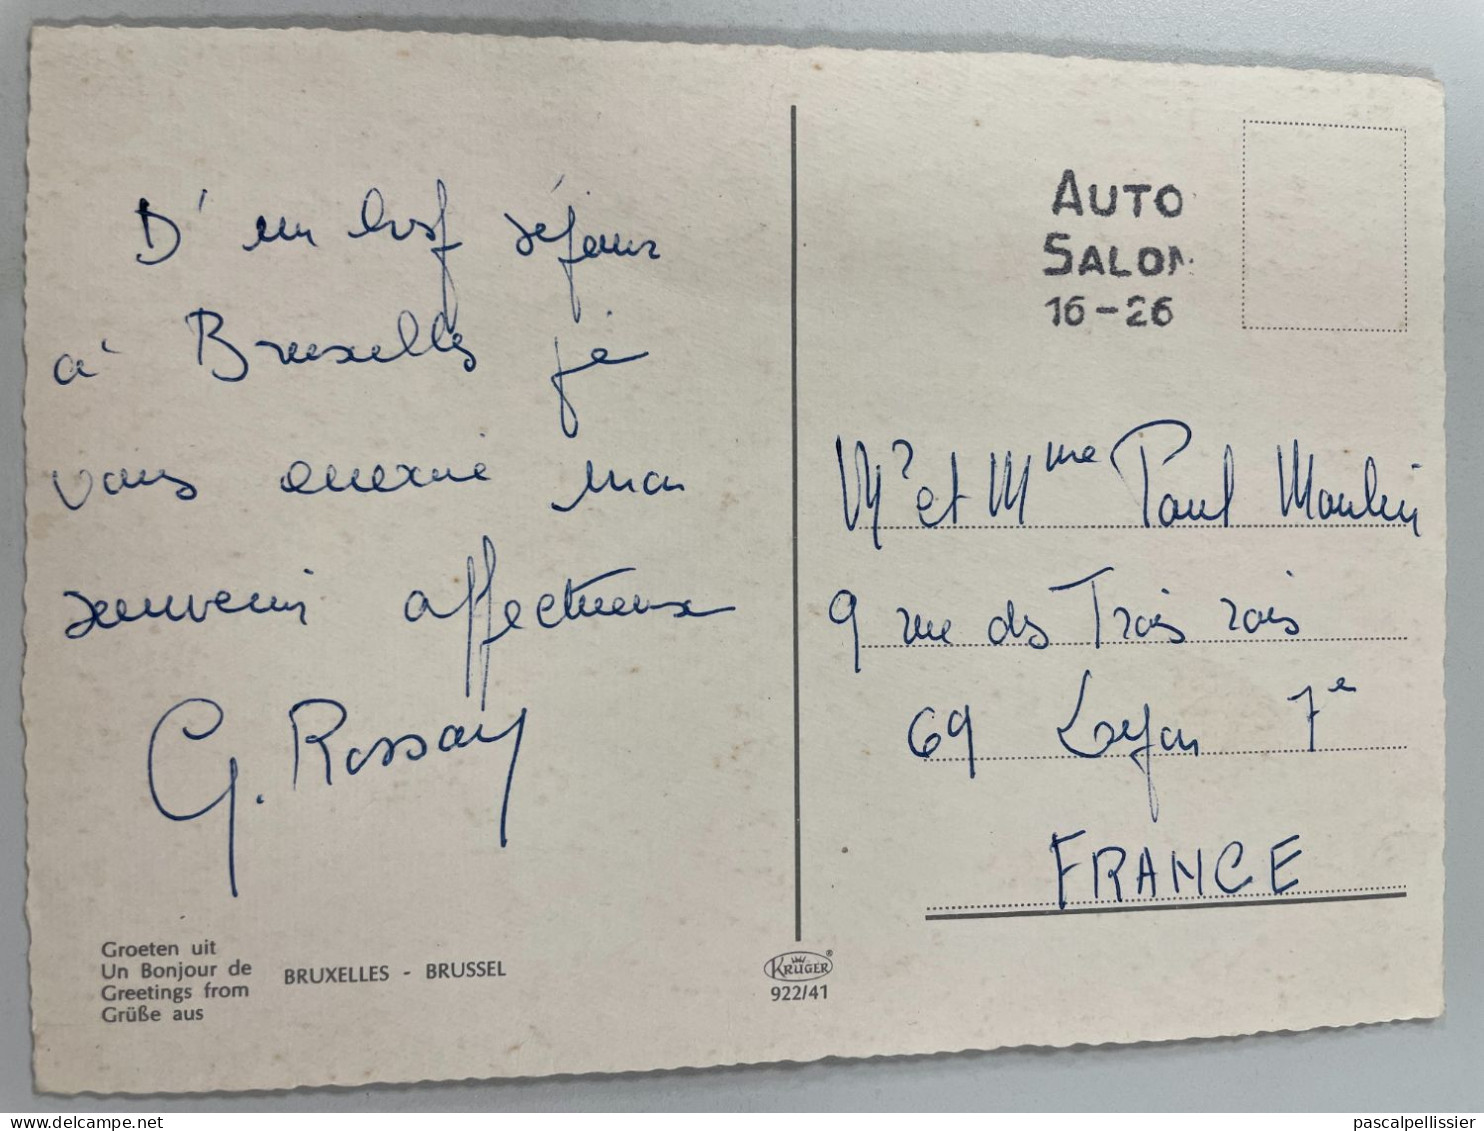 D'un bref séjour
à Bruxelles je
vous envoie mon
souvenir affectueux
G. Rossary
Groeten uit
Un Bonjour de
Greetings from
Grüße aus
BRUXELLES - BRUSSEL
KRÜGER®
922/41
AUTO
SALON
16-26
Mr et Mme Paul Moulin
9 rue des Trois rois
69 Lyon 7e
FRANCE
pascalpellissier